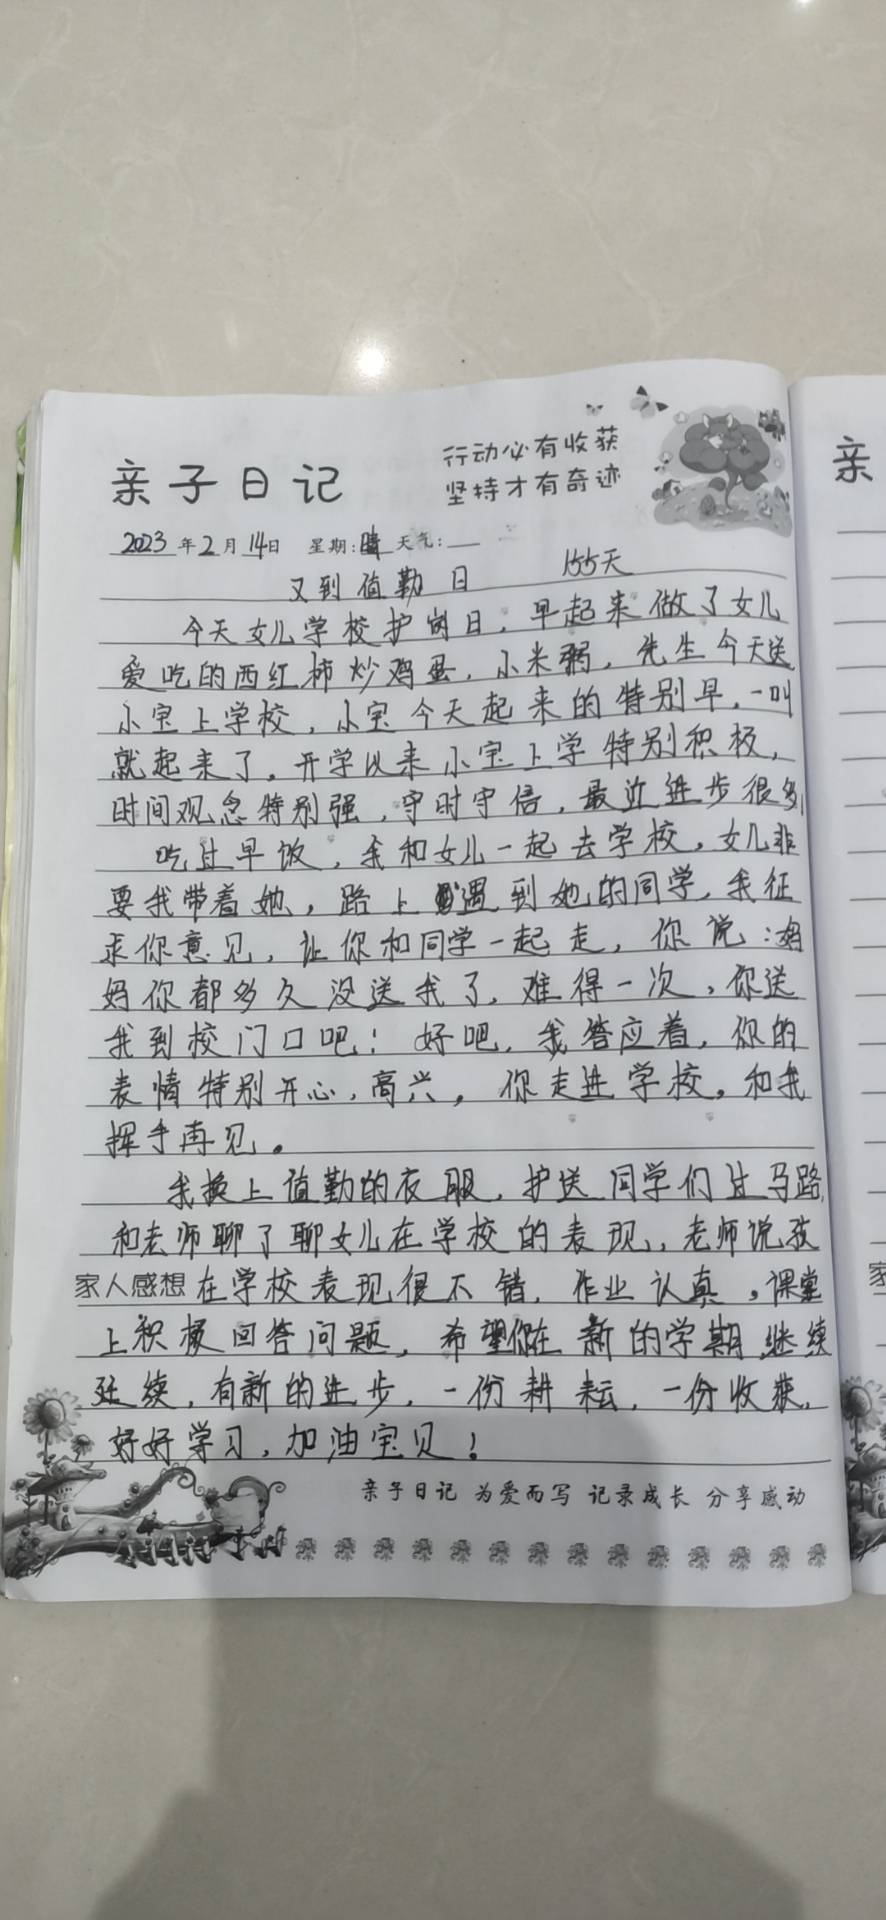 行动必有收获
亲子日记
坚持才有奇迹
2023年2月14日 星期:晴 天气:
又到值勤日 155天
今天女儿学校护岗日，早起来做了女儿
爱吃的西红柿炒鸡蛋，小米粥，先生今天送
小宝上学校，小宝今天起来的特别早，一叫
就起来了。开学以来小宝上学特别积极，
时间观念特别强，守时守信，最近进步很多，
吃过早饭，我和女儿一起去学校，女儿非
要我带着她，路上遇到她的同学，我征
求你意见，让你和同学一起走，你说：妈
妈你都多久没送我了，难得一次，你送
我到校门口吧！好吧，我答应着，你的
表情特别开心，高兴，你走进学校，和我
挥手再见。
我换上值勤的衣服，护送同学们过马路，
和老师聊了聊女儿在学校的表现，老师说孩
家人感想 在学校表现很不错，作业认真，课堂
上积极回答问题，希望你在新的学期继续
延续，有新的进步，一份耕耘，一份收获，
好好学习，加油宝贝！
亲子日记 为爱而写 记录成长 分享感动
亲
家